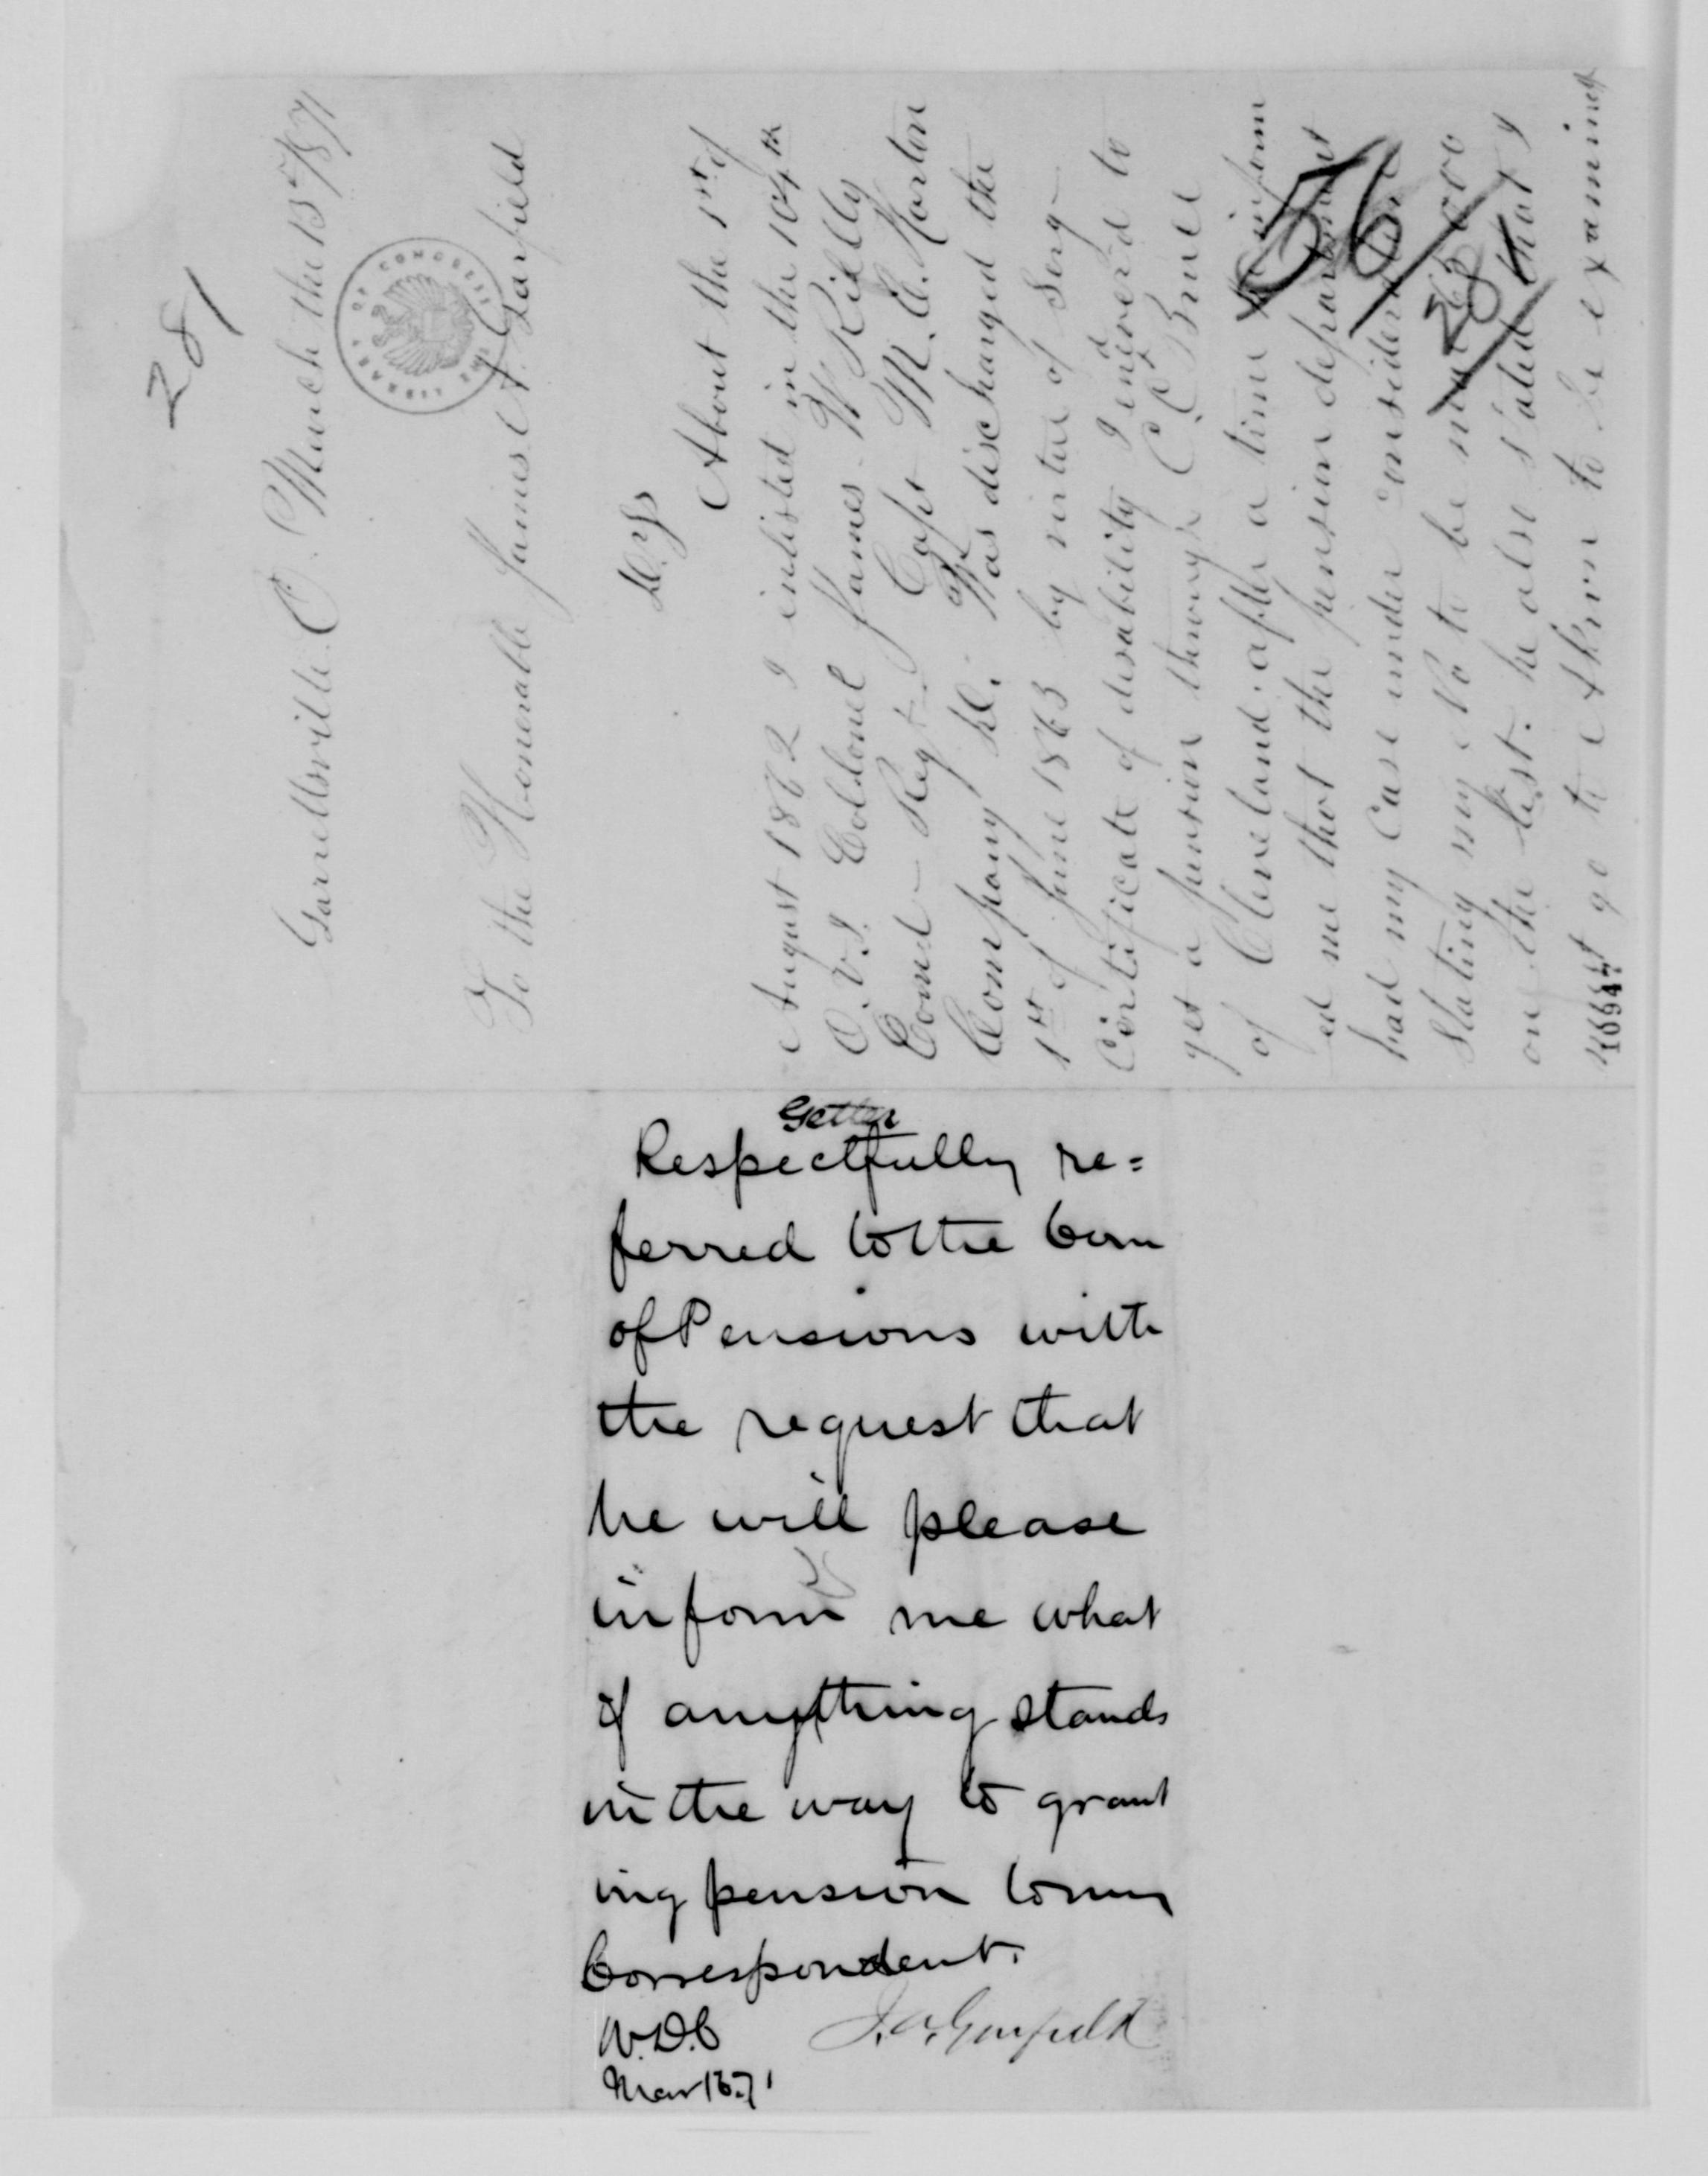 281
Garrettsville O. March the 13th/1871
To the Honerable James A. Garfield
D.C. Sir
About the 1st of
August 1862 I enlisted in the 104th
O.V.I. Coldonel James W Rielly
Comd- Regt. Capt M.C. Horton
Company H. Was discharged the
1st of June 1863 by virtue of Serg-
Certificate of disability I endeverd to
get a pension through C.C. Bruce
of Cleveland. after a time he inform
ed me that the pension department
had my case under consideration
Stating my No to be near
on the list. he also stated that I
must go to Akron to be examined
56
281
10947
Getter
Respectfully re=
ferred to the Com
of Pensions with
the request that
he will please
inform me what
if anything stands
in the way to grant
ing pension to my
Correspondent.
W.D.C J.A. Garfield
Mar 16.71
LIBRARY OF CONGRESS